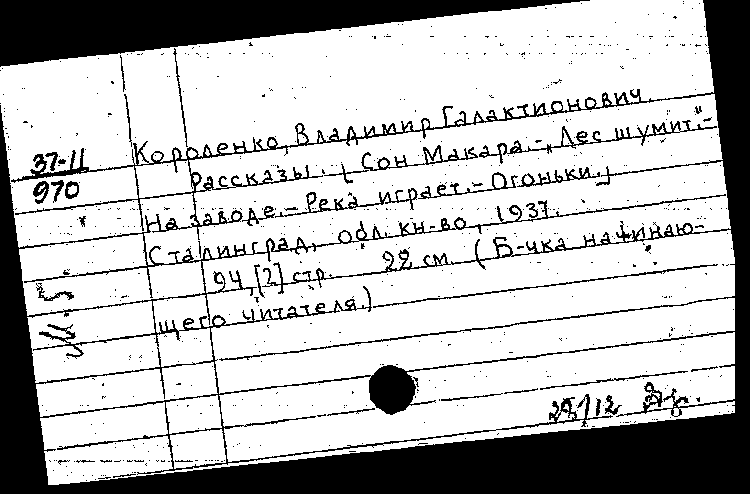 37-11
970
Короленко, Владимир Галактионович.
Рассказы. [Сон Макара.-„Лес шумит."-
На заводе.-Река играет.-Огоньки.]
Сталинград, обл. кн-во, 1937.
94,[2] стр. 22 см. (Б-чка начинаю-
щего читателя.)
28/12